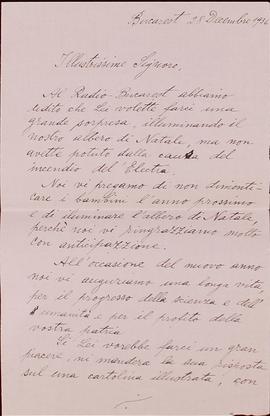 Bucarest 28 Decembre 193
Illustrissime Signore,
Al Radio-Bucarest abbiamo
udito che Lei volette farci una
grande sorpresa, illuminando il
nostro albero di Natale, ma non
avette potuto dalla causa del
incendio del Electra.
Noi vi pregamo di non dimenti-
care i bambini l'anno prossimo
e di iluminare l'albero di Natale,
perchè noi vi ringrazziamo molto
con anticipazzione.
All'occasione del nuovo anno
noi vi auguriamo una longa vita,
per il progresso della scienza e dell'
umanità e per il profito della
vostra patria.
Si Lei vorebbe farci un gran
piacere, mi mandera la sua risposta
sul una cartolina illustrata, con